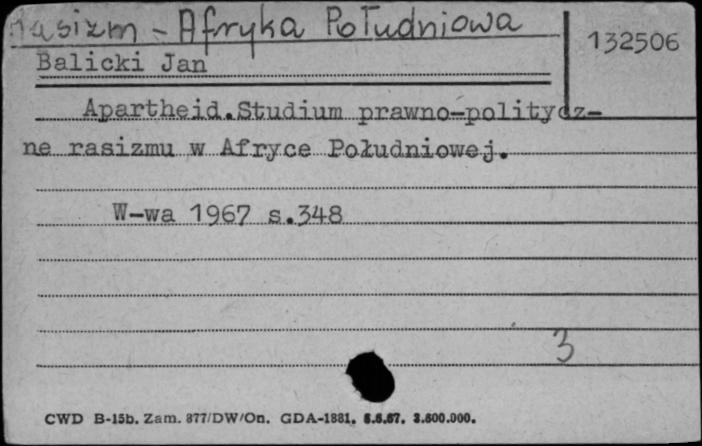 Rasizm - Afryka Południowa
132506
Balicki Jan
Apartheid.Studium prawno-politycz-
ne rasizmu w Afryce Południowej.
W-wa 1967 s.348
3
CWD B-15b. Zam. 877/DW/On. GDA-1881. 6.6.67. 3.600.000.